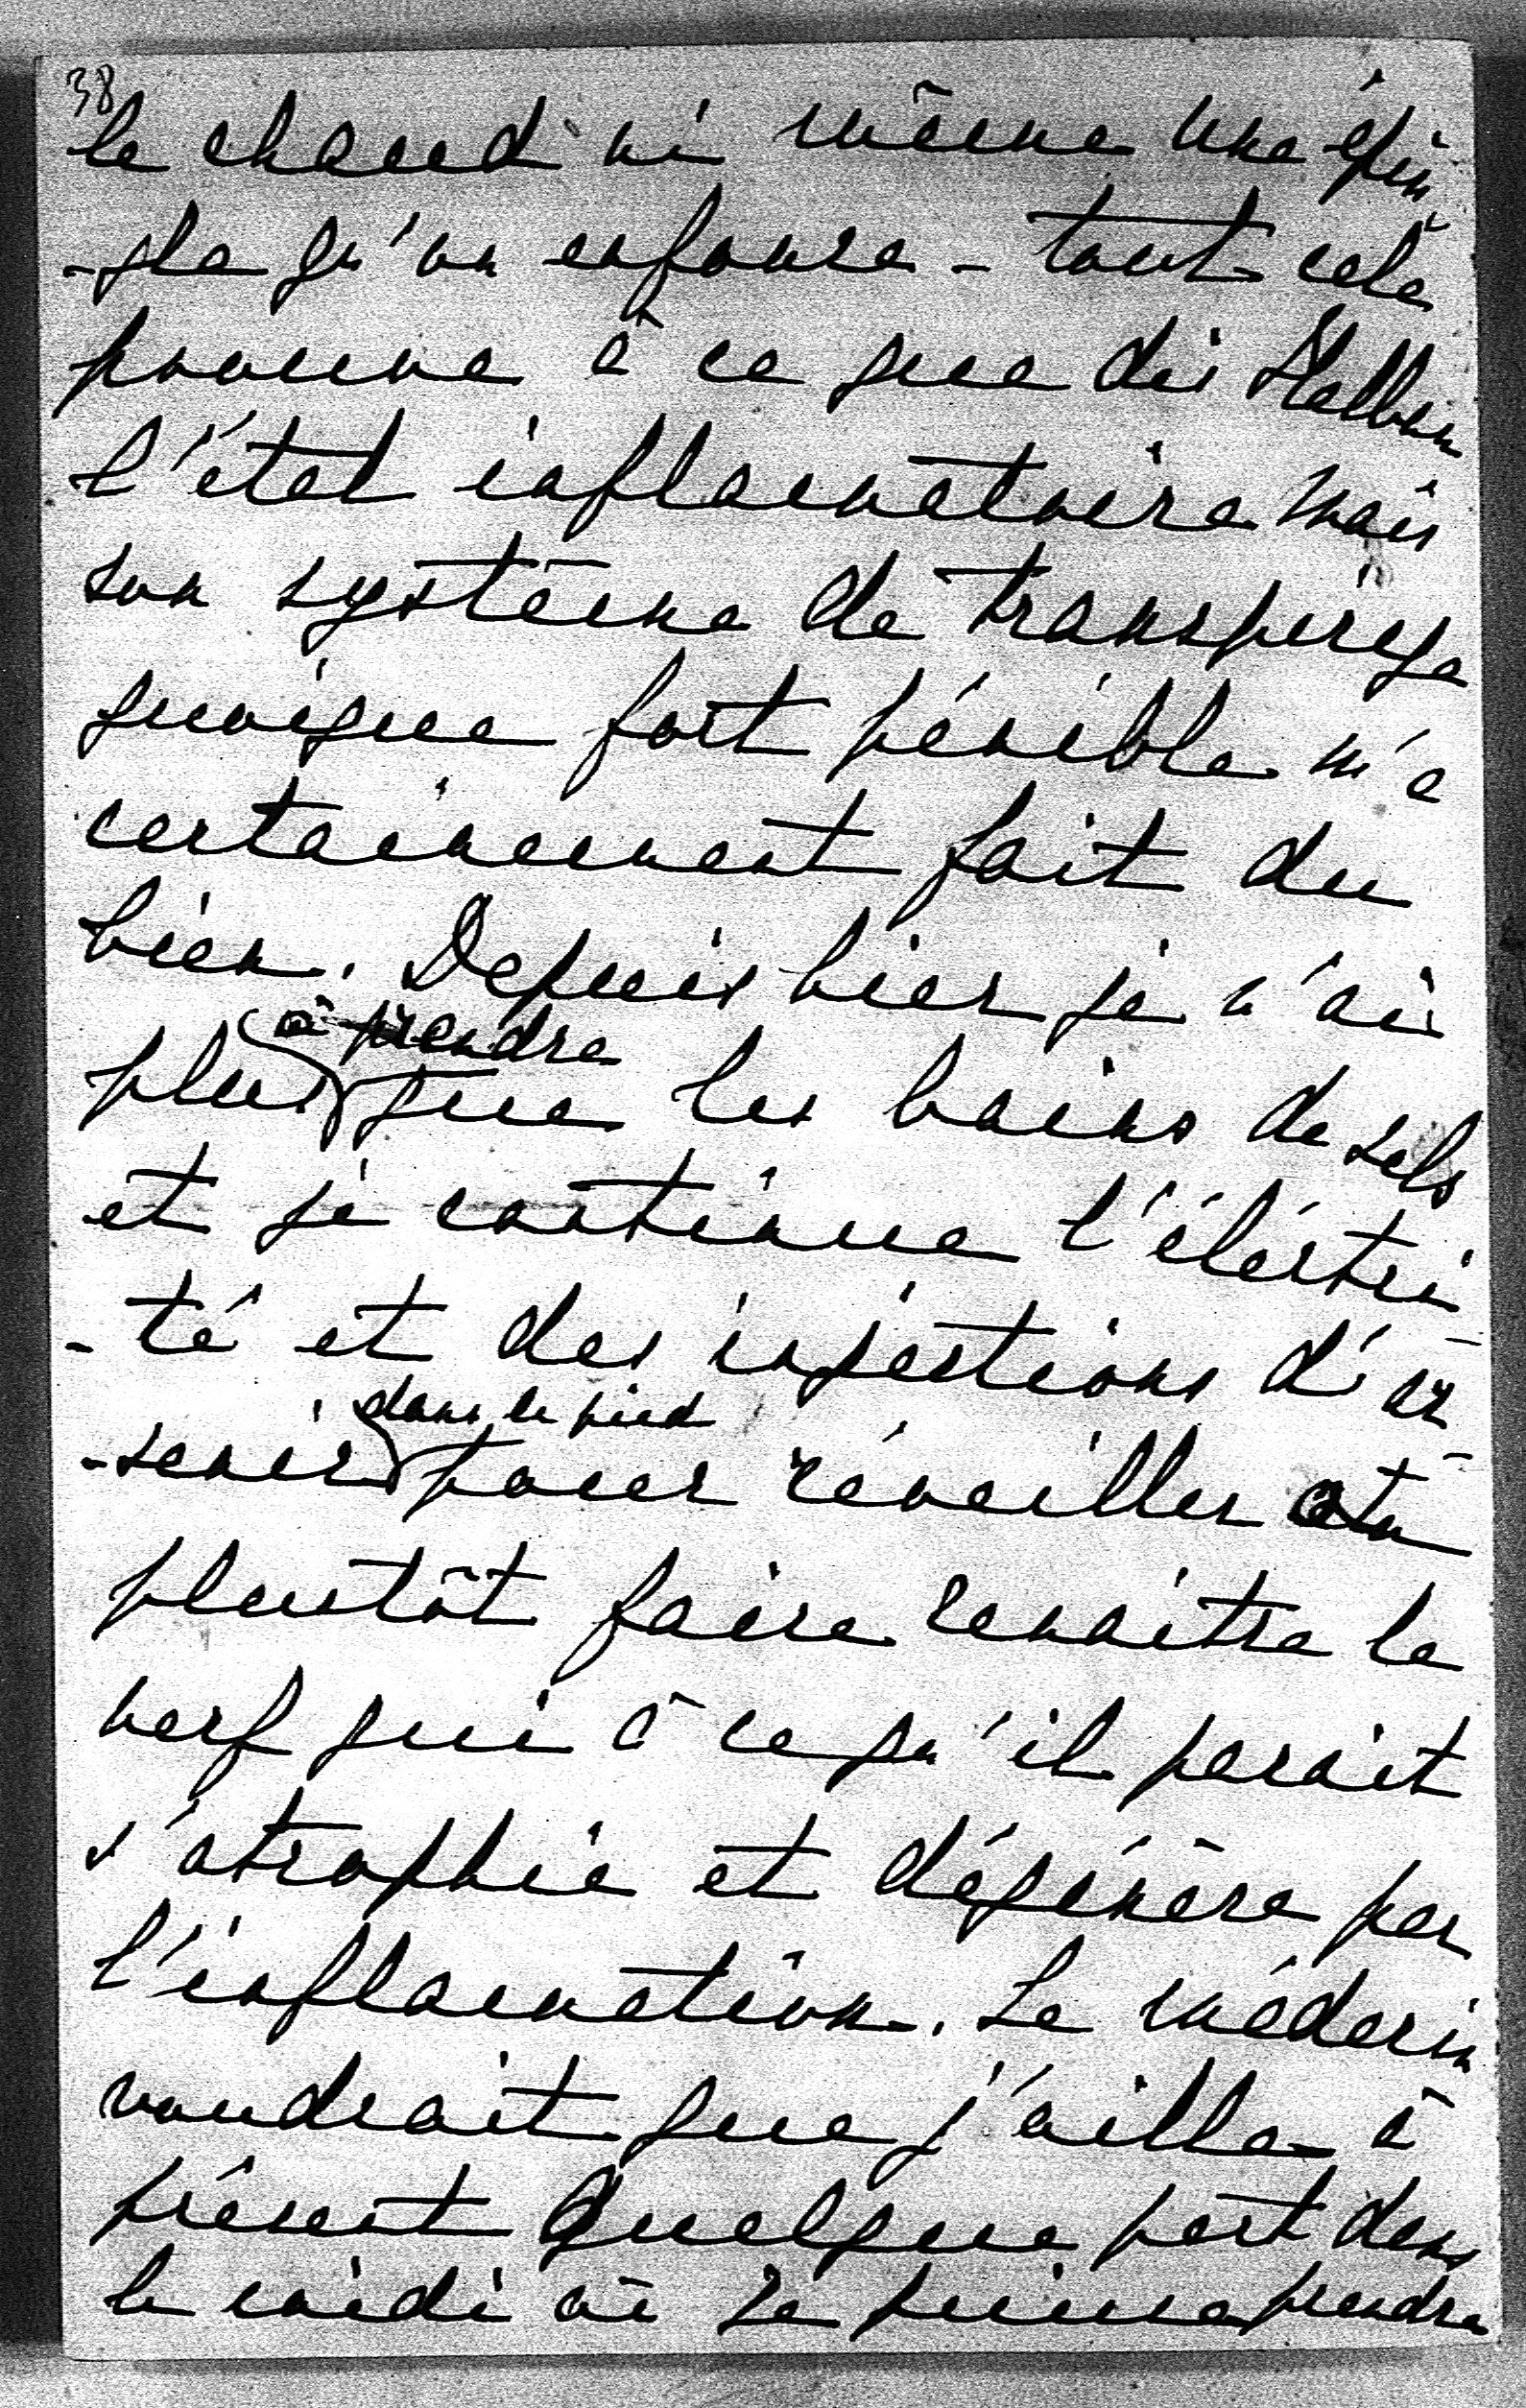 38
le chaud ni même une épin
-gle qu'on enfonce - tout cela
prouve à ce que dis
l'état inflamatoire mais
son système de transpirage
quoique fort pénible m'a
certainement fait du
bien. Depuis hier je n'ai
à prendre
plus que les bains de sels
et je continue l'éléctri
-té et des injections d'ar
dans le pied
-senic pour réveiller ou
plutôt faire renaitre le
nerf qui à ce qu'il parait
s'atrophie et dégénère par
l'inflamation. Le médecin
voudrait que j'aille à
présent quelque part dans
le midi où je puisse prendre